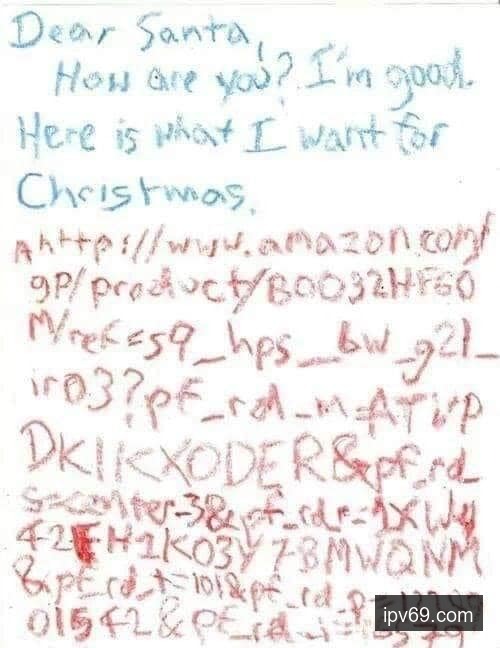 Dear Santa,
How are you? I'm good.
Here is what I want for
Christmas.
A http://www.amazon.com/
gp/product/B0032HF60
M/ref=s9_hps_bw_g21_
ir03?pf_rd_m=ATVP
DKIKX0DER&pf_rd_
s=center-3&pf_rd_r=1XWY
42FH1K03Y7BMWQNM
&pf_rd_t=101&pf_rd_p=
01542&pf_rd_i=
ipv69.com